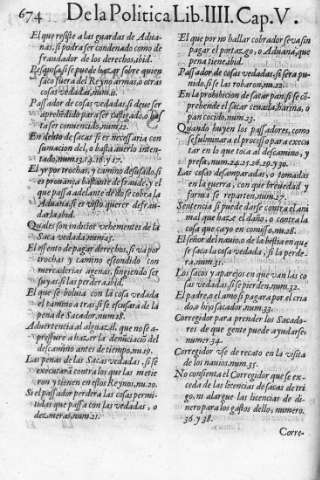 674 De la Politica Lib. IIII. Cap. V.
El que resiste a las guardas de Adua-
nas, si podra ser condenado como de
fraudador de los derechos, ibid.
Pesquisa, si se puede hazer sobre quien
saco fuera del Reyno armas, o otras
cosas vedadas, num. 11.
Passador de cosas vedadas, si deue ser
aprehendido para ser castigado, o bas
ta ser conuencido, num. 12.
En delito de sacas si es necessaria con
sumacion del, o basta auerlo inten-
tado, num. 13. 14. 16. y 17.
El yr por trochas, y camino desusado, si
es prouança bastante de fraude: y el
que passa adelante do se cobra la
Aduana, si es visto querer defrau-
darla, ibid.
Quales son indicios vehementes de la
Saca vedada, num. 15.
El essento de pagar derechos, si va por
trochas y camino escondido con
mercaderias agenas, fingiendo ser
suyas, si las perdera, ibid.
El que se boluia con la cosa vedada
el camino atras, si se escusara de la
pena de Sacador, num. 18.
Aduertencia al alguazil, que no se a-
pressure a hazer la denunciacion del
descamino antes de tiempo, num. 19.
Las penas de las Sacas vedadas, si se
executarà contra los que las metie
ron y tienen en estos Reynos, nu. 20.
Si el passador perdera las cosas permi-
tidas que passa con las vedadas, o
dezmeras, num. 21.
El que por no hallar cobrador se va sin
pagar el portazgo, o Aduana, que
pena tiene, ibid.
Passador de cosas vedadas, si sera pu-
nido, si se las robaron, num. 22.
En la prohibicion de sacar pan, si se cõ-
prehende el sacar ceuada, harina, o
pan cocido, num. 23.
Quando huyen los passadores, como
se fulminara el processo para execu
tar en lo que toca al descamino, y
presa, num. 24. 25. 26. 29. y 30.
Las cosas desamparadas, o tomadas
en la guerra, con que breuedad y
forma se reparten, num. 27.
Sentencia si puede darse contra el ani
mal que haze el daño, o contra la
cosa que cayo en comisso, nu. 28.
El señor del nauio, o de la bestia en que
se saca la cosa vedada, si la perde-
ra, num. 31.
Los sacos y aparejos en que van las co
sas vedadas si se pierden, num. 32.
El padre, o el amo si pagara por el cria
do, o hijo sacador, num. 33.
Corregidor para prender los Sacado-
res de que gente puede ayudarse,
numer. 34.
Corregidor vse de recato en la visita
de los nauios, num. 35.
No consienta el Corregidor que se ex-
ceda de las licencias de sacas de tri
go, ni alargue las licencias de di-
nero para los gastos dellos, numero.
36. y 38.
Corre-